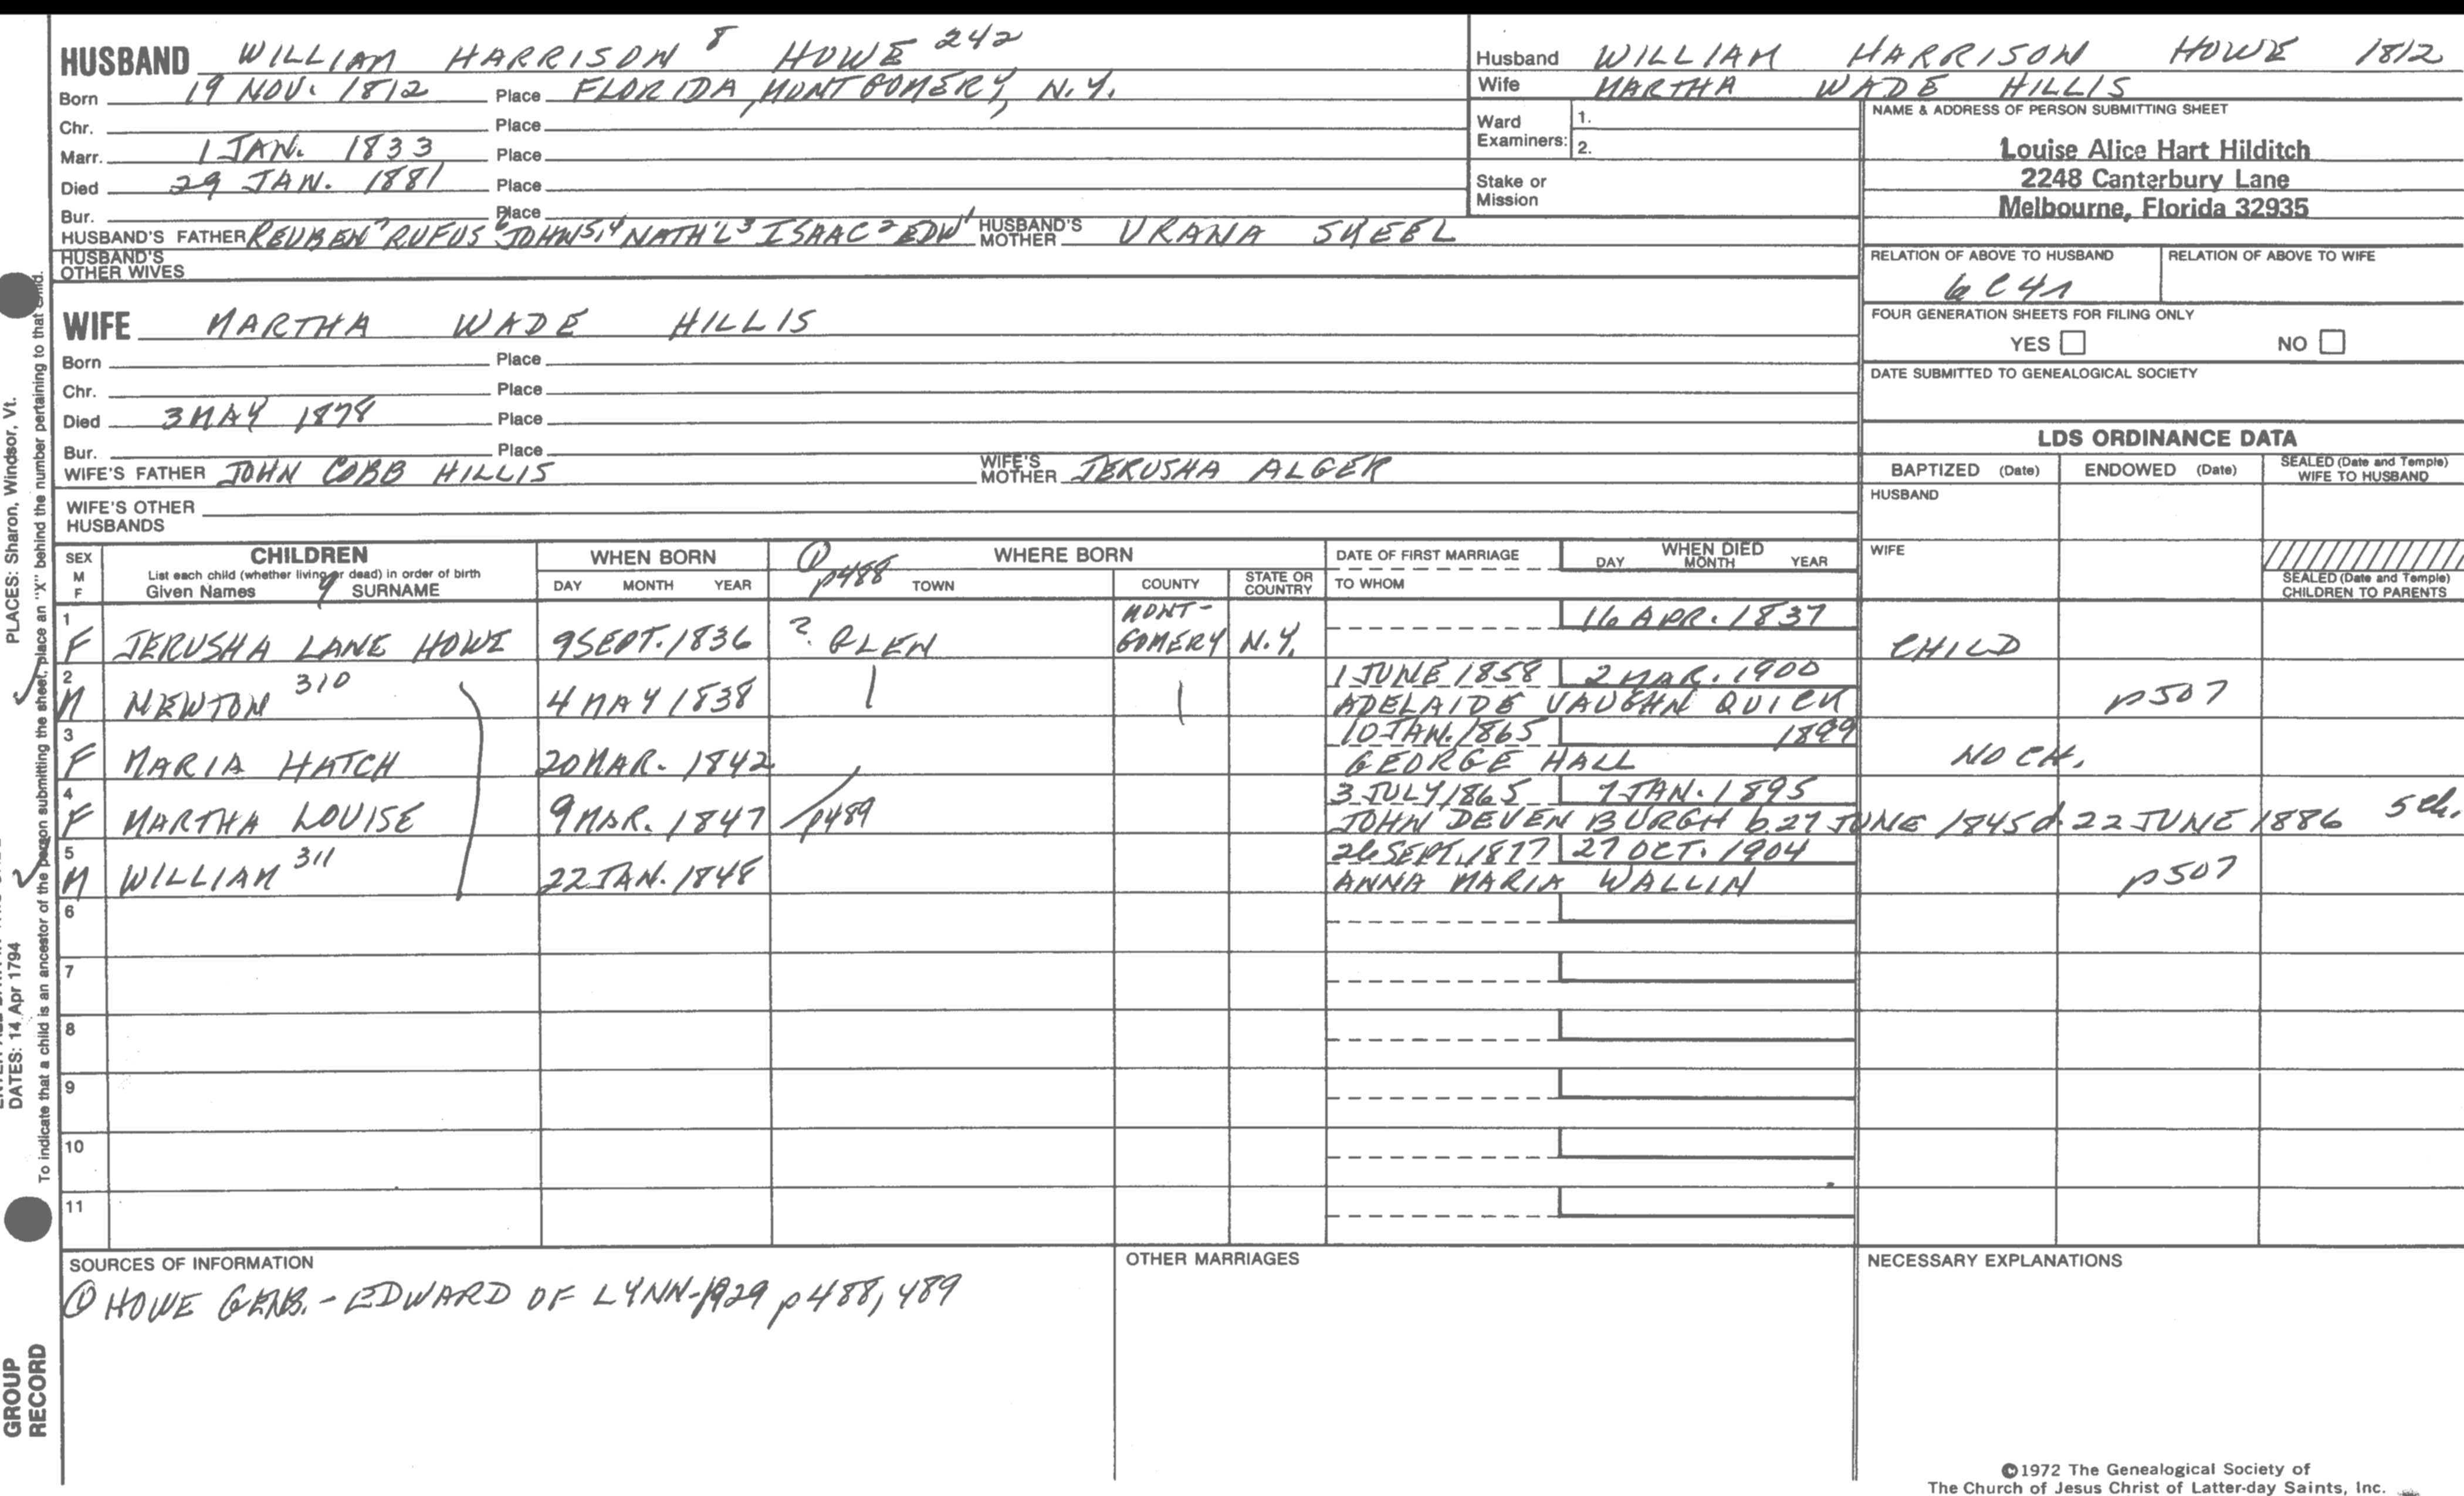 HUSBAND WILLIAM HARRISON 8 HOWE 242
Born 19 NOV. 1812 Place FLORIDA, MONTGOMERY, N.Y.
Chr. Place
Marr. 1 JAN. 1833 Place
Died 29 JAN. 1881 Place
Bur. Place
HUSBAND'S FATHER REUBEN 7 RUFUS 6 JOHN 5,4 NATH'L 3 ISAAC 2 EDW 1 HUSBAND'S MOTHER URANA SHEEL
HUSBAND'S OTHER WIVES
Husband WILLIAM HARRISON HOWE 1812
Wife MARTHA WADE HILLIS
Ward Examiners: 1.
2.
Stake or Mission
NAME & ADDRESS OF PERSON SUBMITTING SHEET
Louise Alice Hart Hilditch
2248 Canterbury Lane
Melbourne, Florida 32935
RELATION OF ABOVE TO HUSBAND RELATION OF ABOVE TO WIFE
6C4r
FOUR GENERATION SHEETS FOR FILING ONLY
YES NO
DATE SUBMITTED TO GENEALOGICAL SOCIETY
WIFE MARTHA WADE HILLIS
Born Place
Chr. Place
Died 3 MAY 1878 Place
Bur. Place
WIFE'S FATHER JOHN COBB HILLIS WIFE'S MOTHER JERUSHA ALGER
WIFE'S OTHER HUSBANDS
LDS ORDINANCE DATA
BAPTIZED (Date) ENDOWED (Date) SEALED (Date and Temple) WIFE TO HUSBAND
HUSBAND
WIFE
SEALED (Date and Temple) CHILDREN TO PARENTS
SEX M F CHILDREN WHEN BORN ① p488 WHERE BORN DATE OF FIRST MARRIAGE WHEN DIED
List each child (whether living or dead) in order of birth
Given Names 9 SURNAME DAY MONTH YEAR TOWN COUNTY STATE OR COUNTRY TO WHOM DAY MONTH YEAR
1 F JERUSHA LANE HOWE 9 SEPT. 1836 ? GLEN MONTGOMERY N.Y. 16 APR. 1837 CHILD
2 M NEWTON 310 4 MAY 1838 1 JUNE 1858 2 MAR. 1900 p507
ADELAIDE VAUGHN QUICK
3 F MARIA HATCH 20 MAR. 1842 10 JAN. 1865 1899 NO CH.
GEORGE HALL
4 F MARTHA LOUISE 9 MAR. 1847 p489 3 JULY 1865 7 JAN. 1895
JOHN DEVEN BURGH b. 27 JUNE 1845 d. 22 JUNE 1886 5 ch.
5 M WILLIAM 311 22 JAN. 1848 26 SEPT. 1877 27 OCT. 1904 p507
ANNA MARIA WALLIN
6
7
8
9
10
11
SOURCES OF INFORMATION OTHER MARRIAGES NECESSARY EXPLANATIONS
① HOWE GENS. - EDWARD OF LYNN - 1929 p488, 489
©1972 The Genealogical Society of
The Church of Jesus Christ of Latter-day Saints, Inc.
PLACES: Sharon, Windsor, Vt.
DATES: 14 Apr 1794
To indicate that a child is an ancestor of the person submitting the sheet, place an "X" behind the number pertaining to that child.
GROUP
RECORD